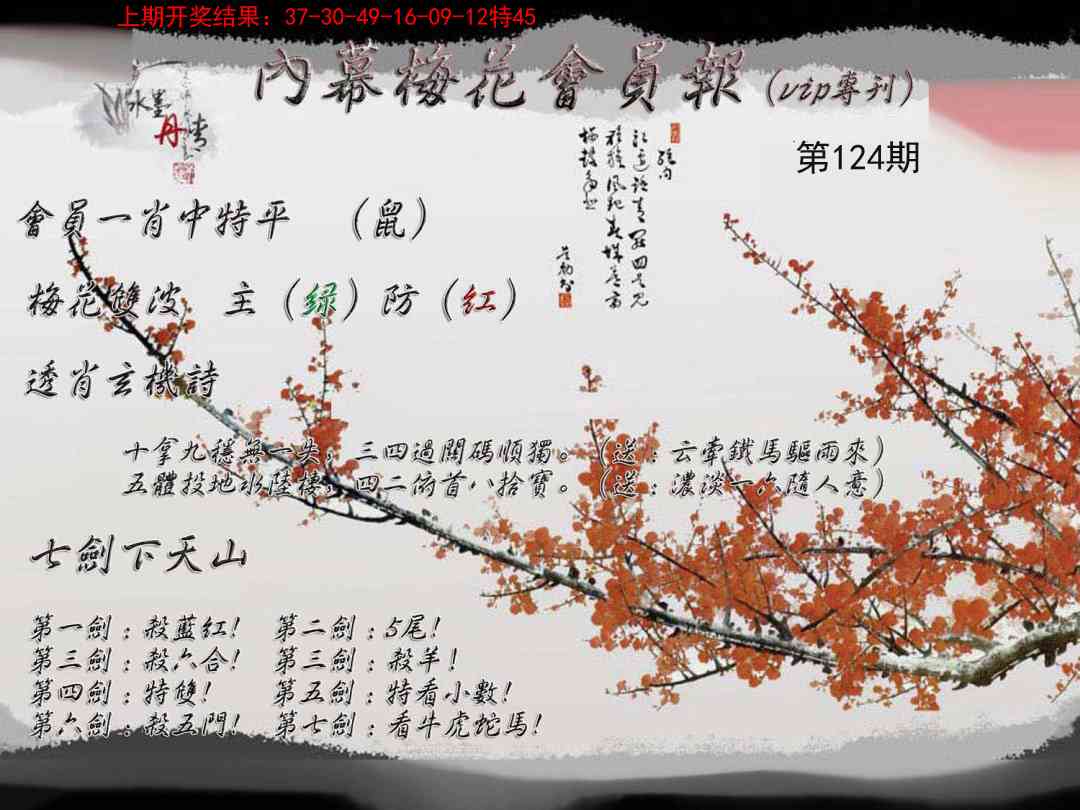 上期开奖结果：37-30-49-16-09-12特45
內幕梅花會員報（vip專刊）
水墨
丹青
第124期
會員一肖中特平　（鼠）
梅花雙波　主（绿）防（红）
透肖玄機詩
十拿九穩無一失，三四過關碼順獨。（送：云牽鐵馬驅雨來）
五體投地水陸樓，四二俯首八拾寶。（送：濃淡一六隨人意）
七劍下天山
第一劍：殺藍紅！　第二劍：5尾！
第三劍：殺六合！　第三劍：殺羊！
第四劍：特雙！　第五劍：特看小數！
第六劍：殺五門！　第七劍：看牛虎蛇馬！